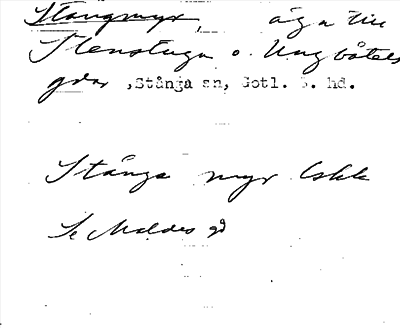 Stångmyr, äga till
Stenstuga o. Ungbåtels
gdar, Stånga sn, Gotl. S. hd.
Stånga myr Eskk
Se Maldes gd